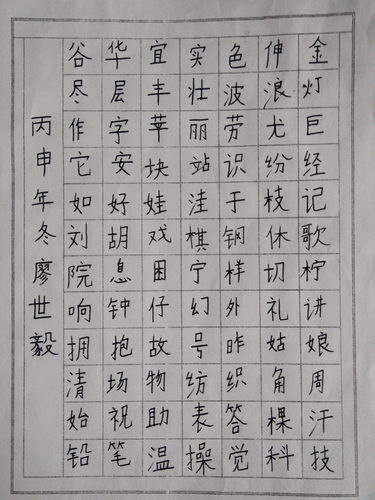 金灯巨经记歌柠讲娘周汗技
伸浪尤纷枝休切礼姑角棵科
色波劳识于钢样外昨织答觉
实壮丽站洼棋宁幻号纺表操
宜丰莘块娃戏困仔故物助温
华层字安好胡息钟抱场祝笔
谷尽作它如刘院响拥清始铅
丙申年冬廖世毅